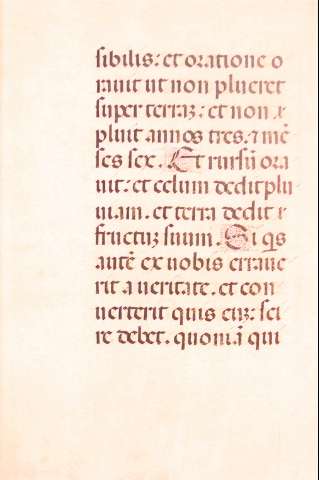 sibilis: et oratione o
rauit ut non plueret
super terraꝫ: et non
pluit annos tres. ⁊ mē
ses sex. Et rursū ora
uit: et celum dedit plu
uiam. et terra dedit
fructuꝫ suum. Si q̄s
autē ex uobis erraue
rit a ueritate. et con
uerterit quis euꝫ: sci
re debet. quoniā qui